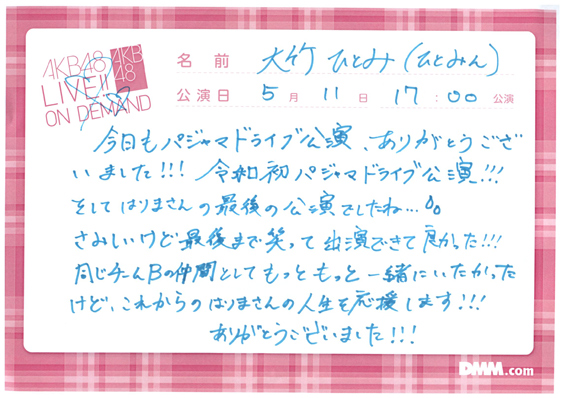 AKB48
LIVE!!
ON DEMAND
AKB
48
名前 大竹 ひとみ (ひとみん)
公演日 5月11日 17:00 公演
今日もパジャマドライブ公演、ありがとうござ
いました!!! 令和初パジャマドライブ公演!!!
そしてはりまさんの最後の公演でしたね…
さみしいけど最後まで笑って出演できて良かった!!!
同じチームBの仲間としてもっともっと一緒にいたかった
けど、これからのはりまさんの人生を応援します!!!
ありがとうございました!!!
DMM.com